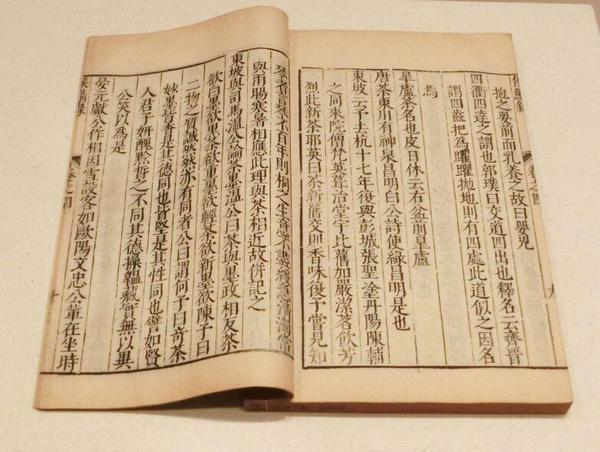 侯鯖錄 卷之四 九
抱之嬰前而乳養之故曰嬰兒
四衢四達之謂也郭璞曰交道四出也釋名云齊晉
謂四齒把為欋欋抛地則有四處此道似之因名
焉
皐盧茶名也皮日休云石盆前皐盧
唐茶東川有神泉昌明白公詩使綠昌明是也
東坡云予去杭十七年復與彭城張聖塗丹陽陳輔
之同來院僧梵英葺治堂宇比舊加嚴潔茗飲芳
烈此新茶耶英曰茶新舊交則香味復予嘗見知
琴者言琴不百年則桐之生意不盡緩急清濁常
與雨暘寒暑相應此理與茶相近故併記之
東坡與司馬溫公論茶墨溫公曰茶與墨政相反茶
欲白墨欲黑茶欲重墨欲輕茶欲新墨欲陳予曰
二物之質誠然然亦有同者公曰謂何予曰奇茶
妙墨皆香是其德同也皆堅是其性同也譬如賢
人君子妍醜黔晳之不同其德操韞藏實無以異
公笑以為是
晏元獻公作相因雪設客如歐陽文忠公輩在坐時
侯鯖錄 卷之四 十